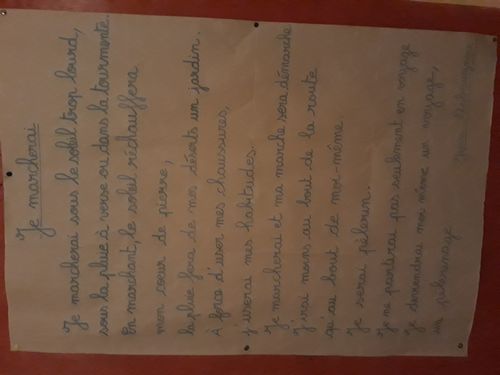 Je marcherai
Je marcherai sous le soleil trop lourd,
sous la pluie à verse ou dans la tourmente.
En marchant, le soleil réchauffera
mon cœur de pierre,
la pluie fera de mes déserts un jardin.
À force d'user mes chaussures,
j'userai mes habitudes.
Je marcherai et ma marche sera démarche
J'irai moins au bout de la route
qu'au bout de moi-même.
Je serai pèlerin.
Je ne partirai pas seulement en voyage
Je deviendrai moi même un voyage,
un pèlerinage
Jean